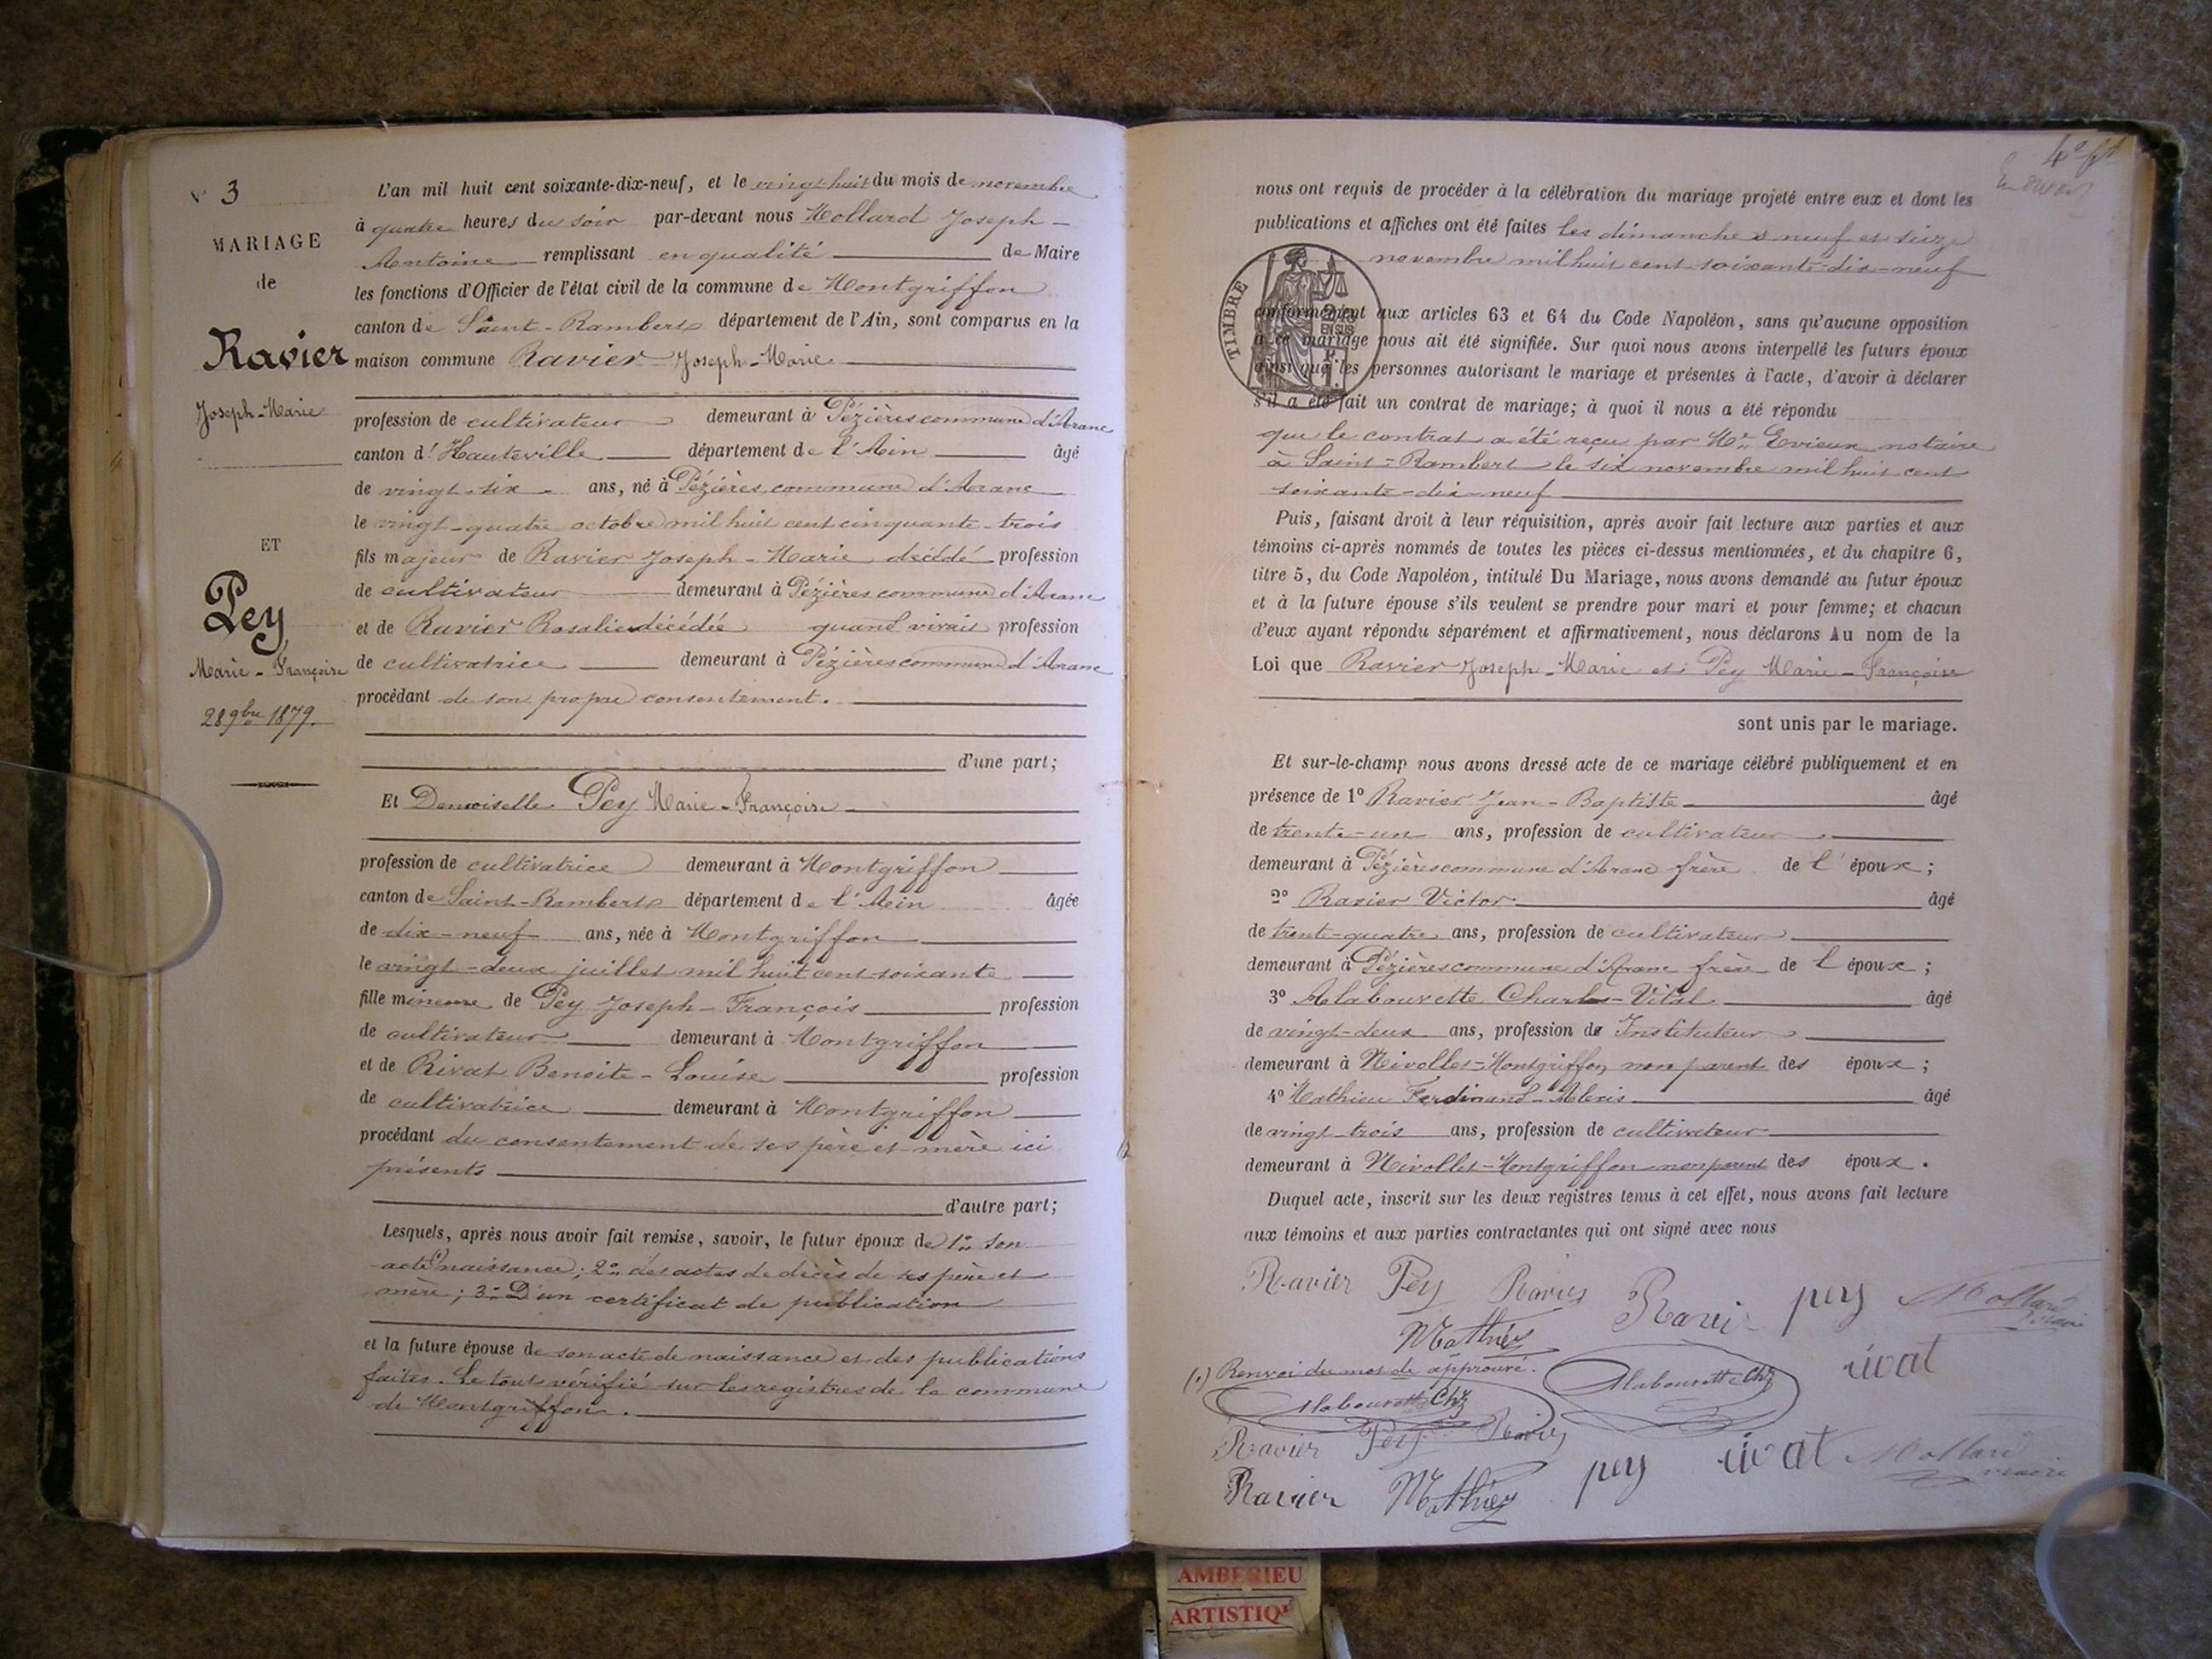 N° 3
MARIAGE
de
Ravier
Joseph-Marie
ET
Pey
Marie-Françoise
28 9bre 1879.
L'an mil huit cent soixante-dix-neuf, et le vingt-huit du mois de novembre
à quatre heures du soir par-devant nous Mollard Joseph-
Antoine remplissant en qualité de Maire
les fonctions d'Officier de l'état civil de la commune de Montgriffon
canton de Saint-Rambert département de l'Ain, sont comparus en la
maison commune Ravier Joseph-Marie
profession de cultivateur demeurant à Pézières commune d'Aranc
canton d'Hauteville département de l'Ain âgé
de vingt-six ans, né à Pézières, commune d'Aranc
le vingt-quatre octobre mil huit cent cinquante-trois
fils majeur de Ravier Joseph-Marie décédé profession
de cultivateur demeurant à Pézières commune d'Aranc
et de Ravier Rosalie décédée quand vivait profession
de cultivatrice demeurant à Pézières commune d'Aranc
procédant de son propre consentement.
d'une part;
Et Demoiselle Pey Marie-Françoise
profession de cultivatrice demeurant à Montgriffon
canton de Saint-Rambert département de l'Ain âgée
de dix-neuf ans, née à Montgriffon
le vingt-deux juillet mil huit cent soixante
fille mineure de Pey Joseph-François profession
de cultivateur demeurant à Montgriffon
et de Rivat Benoite-Louise profession
de cultivatrice demeurant à Montgriffon
procédant du consentement de ses père et mère ici
présents
d'autre part;
Lesquels, après nous avoir fait remise, savoir, le futur époux de 1° son
acte naissance; 2° des actes de décès de ses père et
mère; 3° D'un certificat de publication
et la future épouse de son acte de naissance et des publications
faites. Le tout vérifié sur les registres de la commune
de Montgriffon.
nous ont requis de procéder à la célébration du mariage projeté entre eux et dont les
publications et affiches ont été faites les dimanches neuf et seize
novembre mil huit cent soixante-dix-neuf
TIMBRE
EN SUS
conformément aux articles 63 et 64 du Code Napoléon, sans qu'aucune opposition
à ce mariage nous ait été signifiée. Sur quoi nous avons interpellé les futurs époux
ainsi que les personnes autorisant le mariage et présentes à l'acte, d'avoir à déclarer
s'il a été fait un contrat de mariage; à quoi il nous a été répondu
que le contrat a été reçu par Me Evieux notaire
à Saint-Rambert le six novembre mil huit cent
soixante-dix-neuf
Puis, faisant droit à leur réquisition, après avoir fait lecture aux parties et aux
témoins ci-après nommés de toutes les pièces ci-dessus mentionnées, et du chapitre 6,
titre 5, du Code Napoléon, intitulé Du Mariage, nous avons demandé au futur époux
et à la future épouse s'ils veulent se prendre pour mari et pour femme; et chacun
d'eux ayant répondu séparément et affirmativement, nous déclarons Au nom de la
Loi que Ravier Joseph-Marie et Pey Marie-Françoise
sont unis par le mariage.
Et sur-le-champ nous avons dressé acte de ce mariage célébré publiquement et en
présence de 1° Ravier Jean-Baptiste âgé
de trente-un ans, profession de cultivateur
demeurant à Pézières commune d'Aranc frère de l'époux;
2° Ravier Victor âgé
de trente-quatre ans, profession de cultivateur
demeurant à Pézières commune d'Aranc frère de l'époux;
3° Alabouvette Charles-Vital âgé
de vingt-deux ans, profession de Instituteur
demeurant à Nivollet-Montgriffon non parent des époux;
4° Mathieu Ferdinand-Alexis âgé
de vingt-trois ans, profession de cultivateur
demeurant à Nivollet-Montgriffon non parent des époux.
Duquel acte, inscrit sur les deux registres tenus à cet effet, nous avons fait lecture
aux témoins et aux parties contractantes qui ont signé avec nous
Ravier Pey Ravier Ravier pey Mollard
maire
Mathieu
(.) Renvoi du mot de approuvé.
Alabouvette Chs rivat
Alabouvette Chs
Ravier Pey Ravier
Ravier Mathieu pey rivat Mollard
maire
AMBERIEU
ARTISTIQ